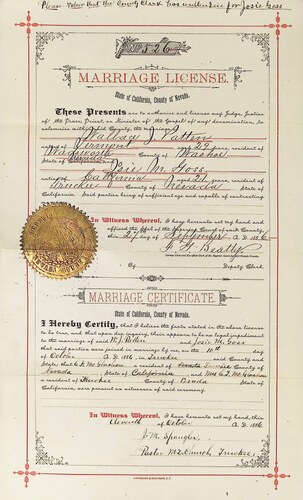 Please Notice that the County Clerk has written for Josie Goss
No 526
MARRIAGE LICENSE.
State of California, County of Nevada.
These Presents are to authorize and license any Judge, Justice
of the Peace, Priest, or Minister of the Gospel of any denomination, to
solemnize within said County, the marriage of
Wallace J. Patten
native of Vermont aged 29 years, resident of
Wadsworth County of Washoe
State of Nevada and
Josie M. Goss
native of California aged 21 years, resident of
Truckee County of Nevada
State of California. Said parties being of sufficient age and capable of contracting
In Witness Whereof, I have hereunto set my hand and
affixed the Seal of the Superior Court of said County, this
27 day of September A. D. 1886
F. G. Beatty
By Deputy Clerk.
MARRIAGE CERTIFICATE
State of California, County of Nevada.
I Hereby Certify, that I believe the facts stated in the above license
to be true, and that upon due inquiry, there appears to be no legal impediment
to the marriage of said W. J. Patten and Josie M. Goss
that said parties were joined in marriage by me, on the 10th day
of October A. D. 1886, in Truckee said County and
State; that
Nevada State of California and
a resident of Truckee County of Nevada State of
California, were present as witnesses of said ceremony.
In Witness Whereof, I have hereunto set my hand, this
Eleventh October A. D. 1886
J. M. Spangler,
Pastor M. E. Church, Truckee,